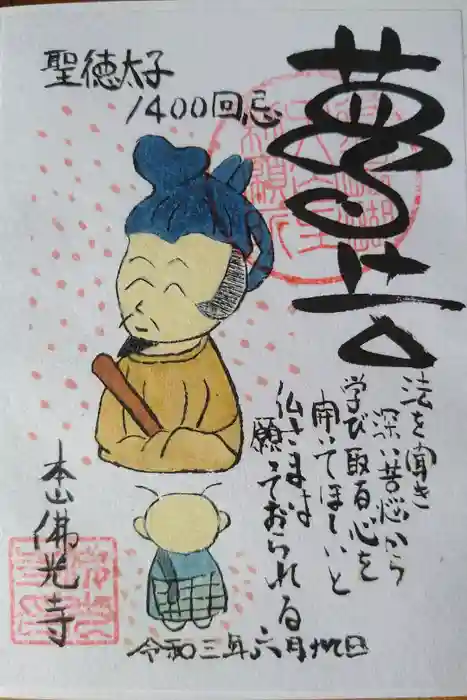 聖徳太子
1400回忌
法を聞き
深い苦悩から
学び取る心を
開いてほしいと
仏さまは
願っておられる
本山佛光寺
令和三年六月卅日